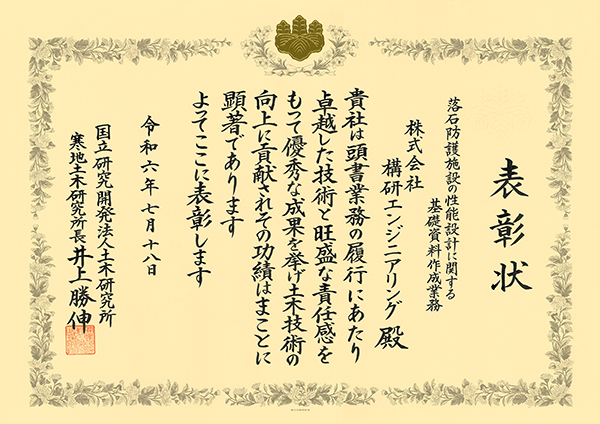 表彰状
落石防護施設の性能設計に関する
基礎資料作成業務
株式会社
構研エンジニアリング 殿
貴社は頭書業務の履行にあたり
卓越した技術と旺盛な責任感を
もって優秀な成果を挙げ土木技術の
向上に貢献されその功績はまことに
顕著であります
よってここに表彰します
令和六年七月十八日
国立研究開発法人土木研究所
寒地土木研究所長 井上勝伸